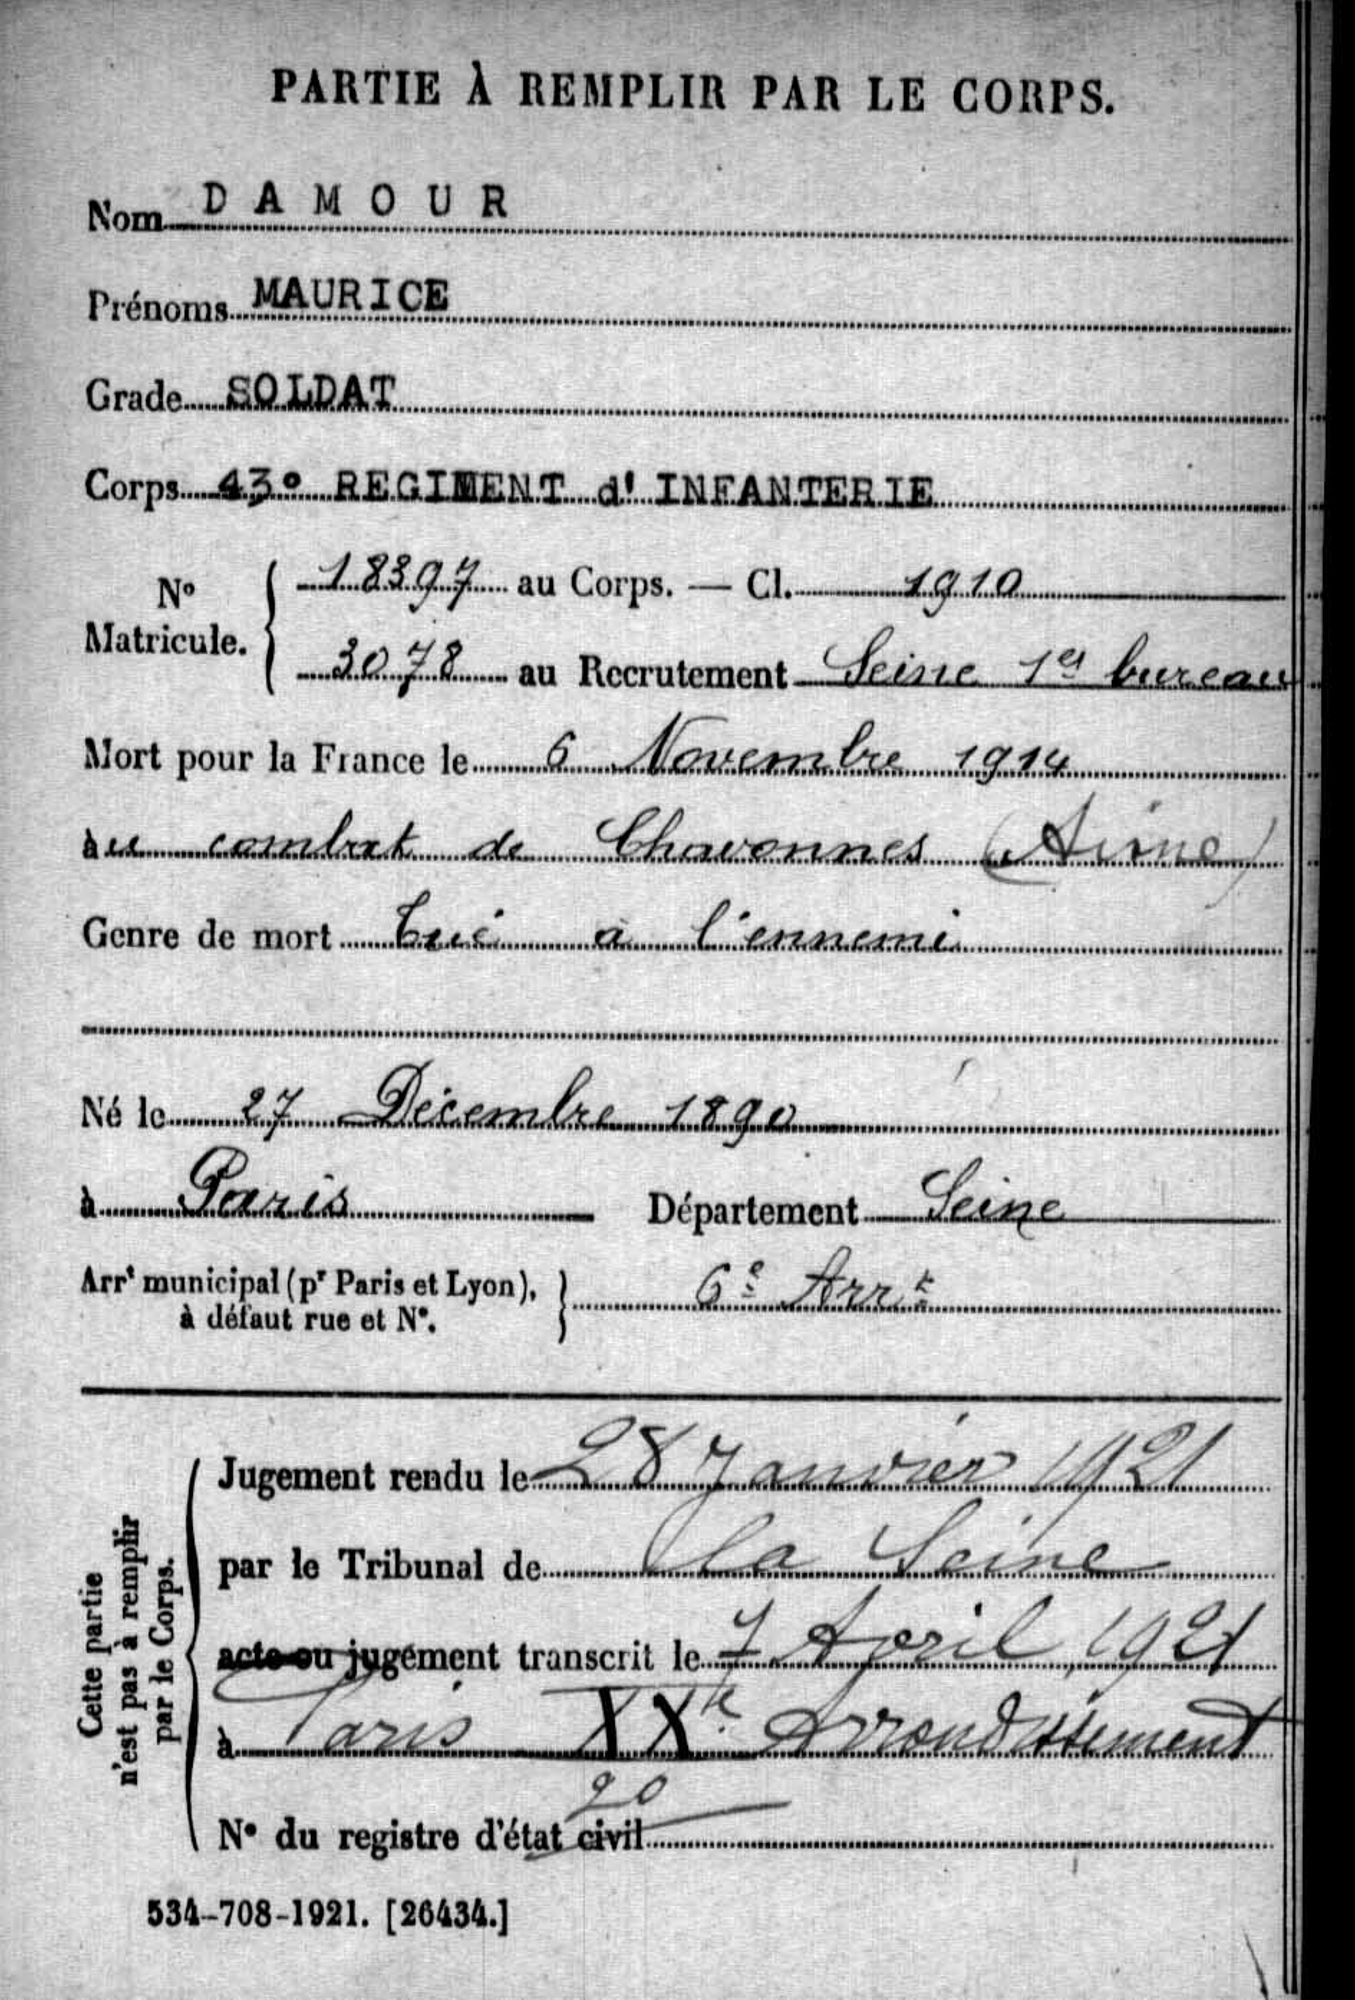 PARTIE À REMPLIR PAR LE CORPS.
Nom DAMOUR
Prénoms MAURICE
Grade SOLDAT
Corps 43° REGIMENT d' INFANTERIE
N° Matricule. { 18397 au Corps. — Cl. 1910
3078 au Recrutement Seine 1er bureau
Mort pour la France le 6 Novembre 1914
au combat de Chavonnes (Aisne)
Genre de mort Tué à l'ennemi
Né le 27 Décembre 1890
à Paris Département Seine
Arrt municipal (pr Paris et Lyon), à défaut rue et N°. } 6e Arrt
Cette partie n'est pas à remplir par le Corps.
Jugement rendu le 28 Janvier 1921
par le Tribunal de la Seine
acte ou jugement transcrit le 7 April 1921
à Paris XXe Arrondissement
20
N° du registre d'état civil
534-708-1921. [26434.]